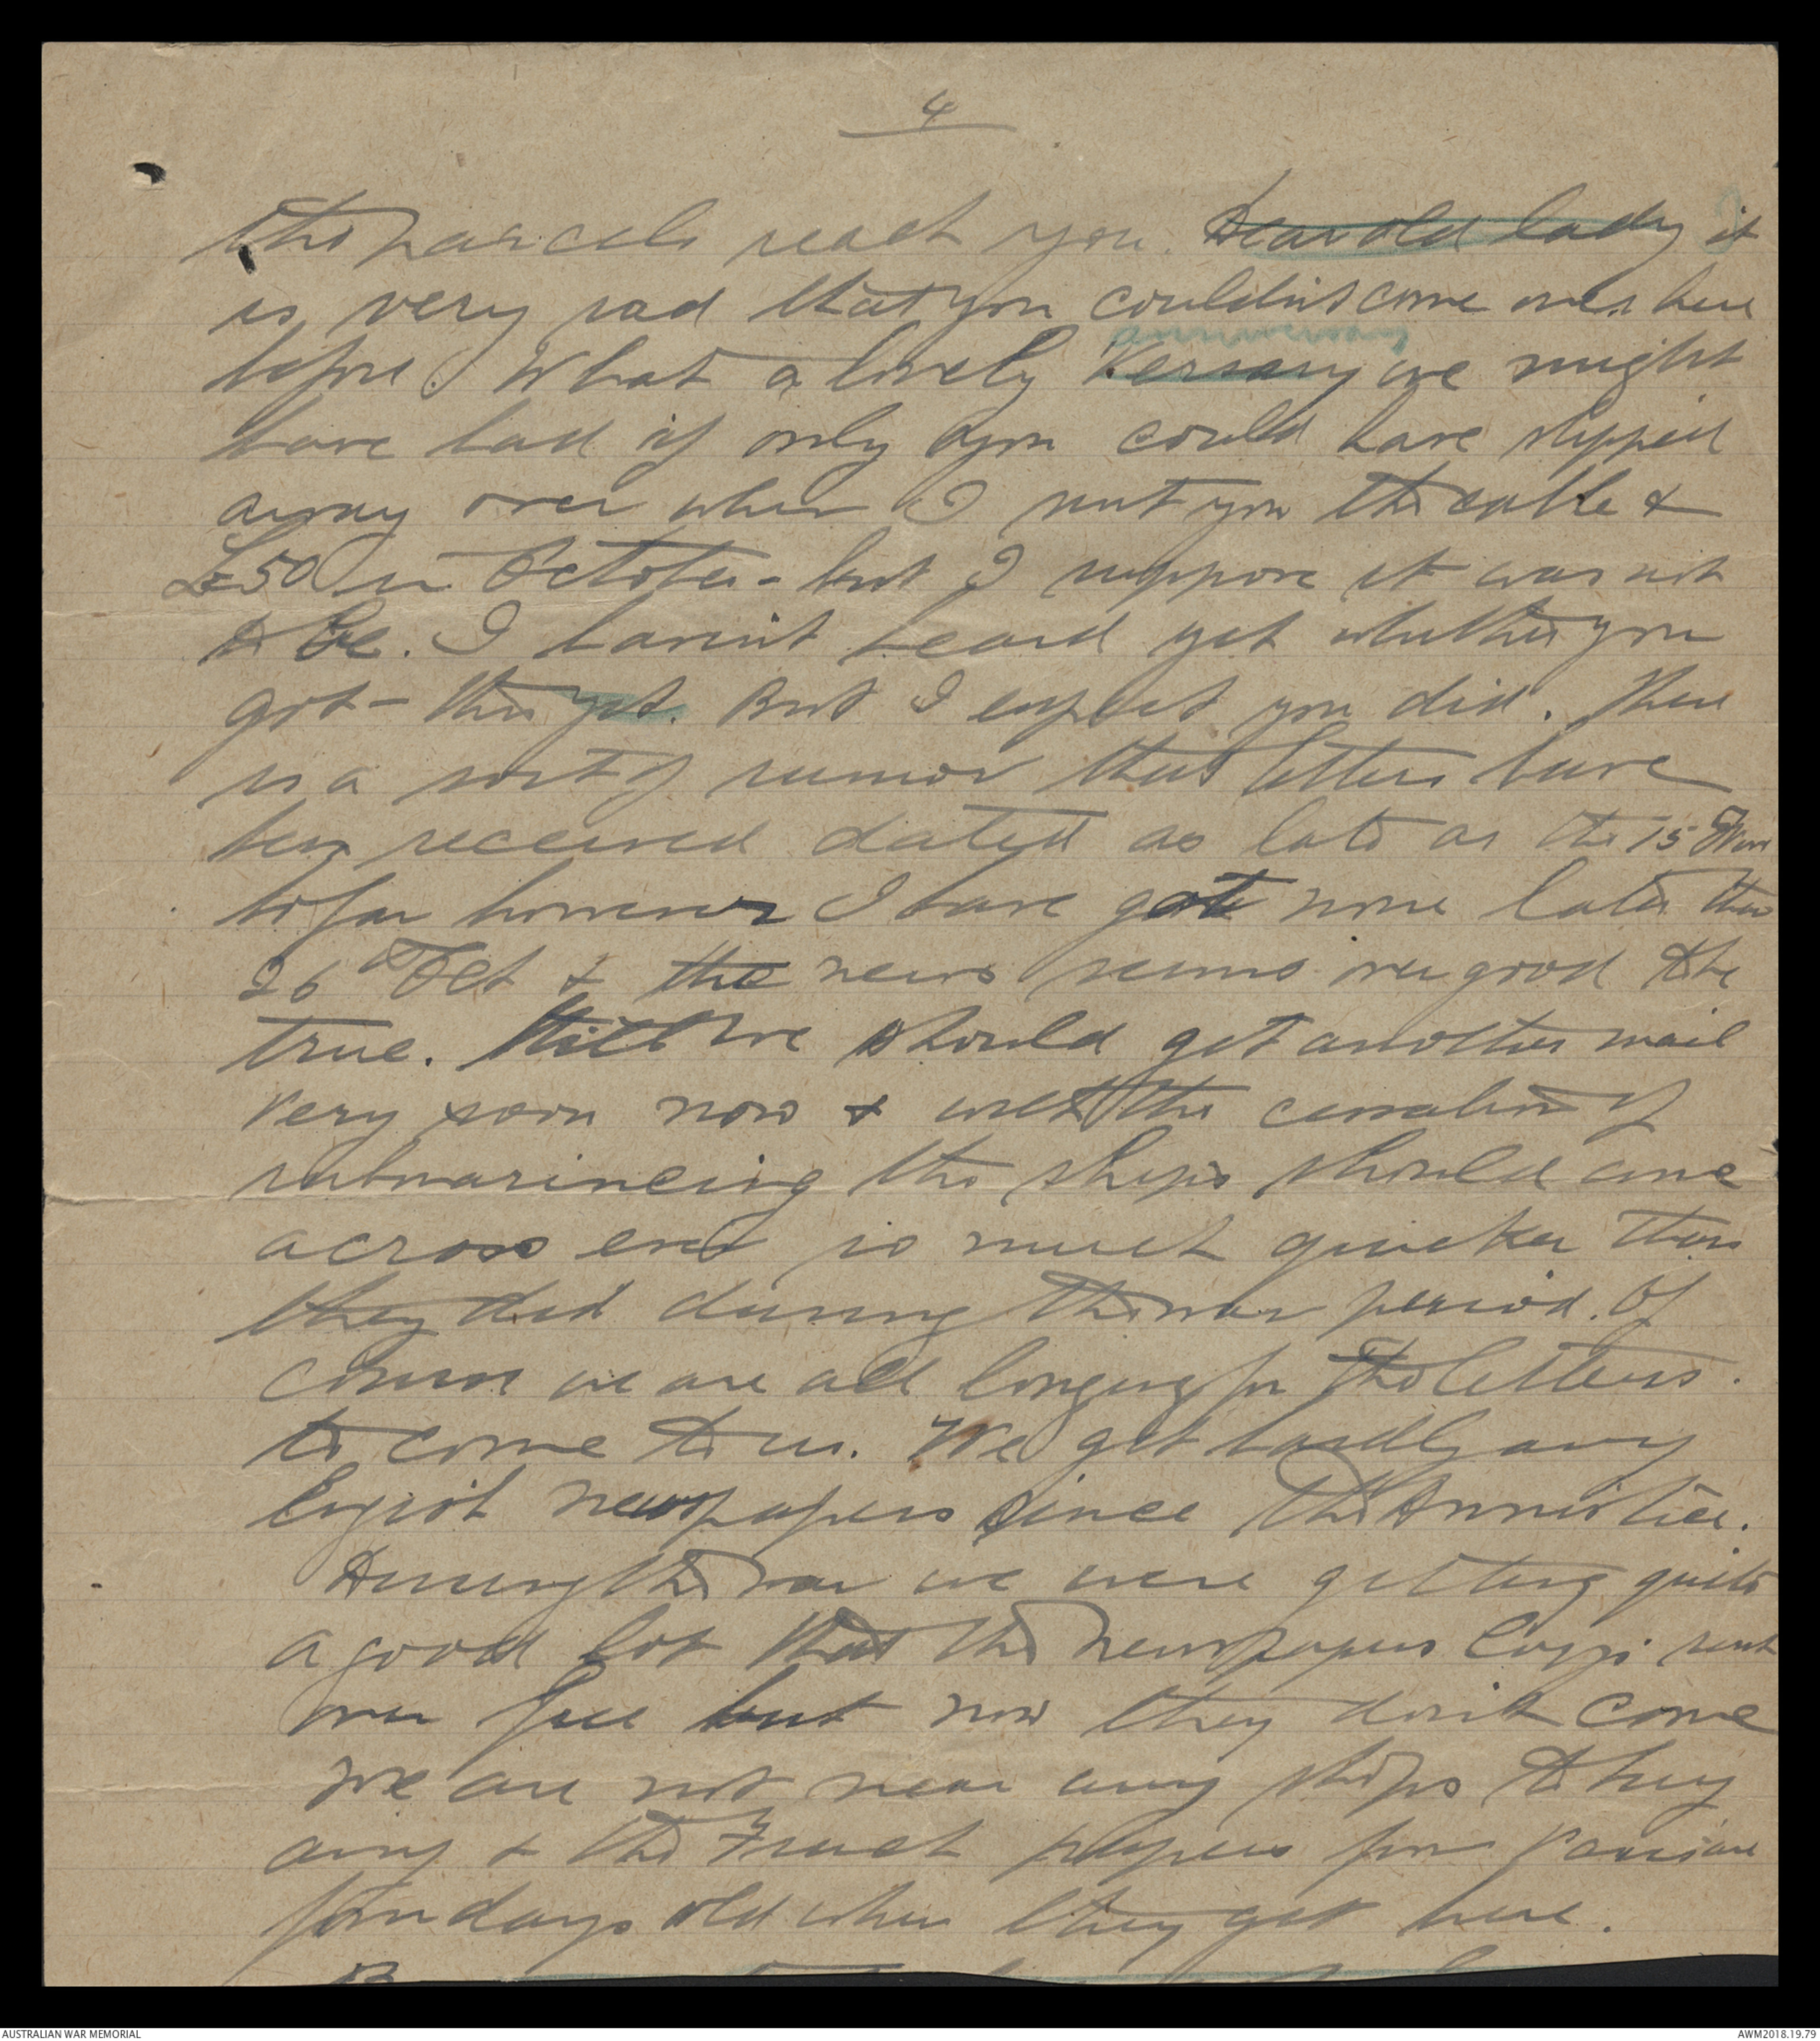 4
the parcels reach you. Dear old lady it
is very sad that you couldn't come over here
before. What a lovely Versary we might
anniversary
have had if only you could have slipped
away over when I sent you the cable &
£50 in October - but I suppose it was not
to be. I haven't heard yet whether you
got - this yet. But I expect you did. There
is a sort of rumor that letters have
been received dated as late as the 15th Nov
so far however I have got none later than
26th Oct & the news seems over good to be
true. Still we should get another mail
very soon now & with the cessation of
submarineing the ships should come
across ever so much quicker than
they did during the war period. Of
course we are all longing for the letters.
to come to us. We get hardly any
English newspapers since the Armistice.
During the war we were getting quite
a good lot that the newspapers sent
over free but now they don't come
We are not near any shops to buy
any & the French papers from Paris are
four days old when they get here.